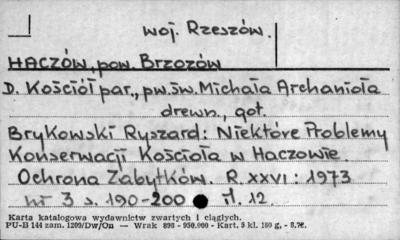 woj. Rzeszów.
HACZÓW, pow. Brzozów
D. Kościół par., pw. św. Michała Archanioła
drewn., got.
Brykowski Ryszard: Niektóre Problemy
Konserwacji Kościoła w Haczowie.
Ochrona Zabytków. R. XXVI: 1973
nr 3 s. 190-200 il. 12.
Karta katalogowa wydawnictw zwartych i ciągłych.
PU-B 144 zam. 1209/Dw/On — Wrak 893 - 950.000 - Kart. 5 kl. 180 g,